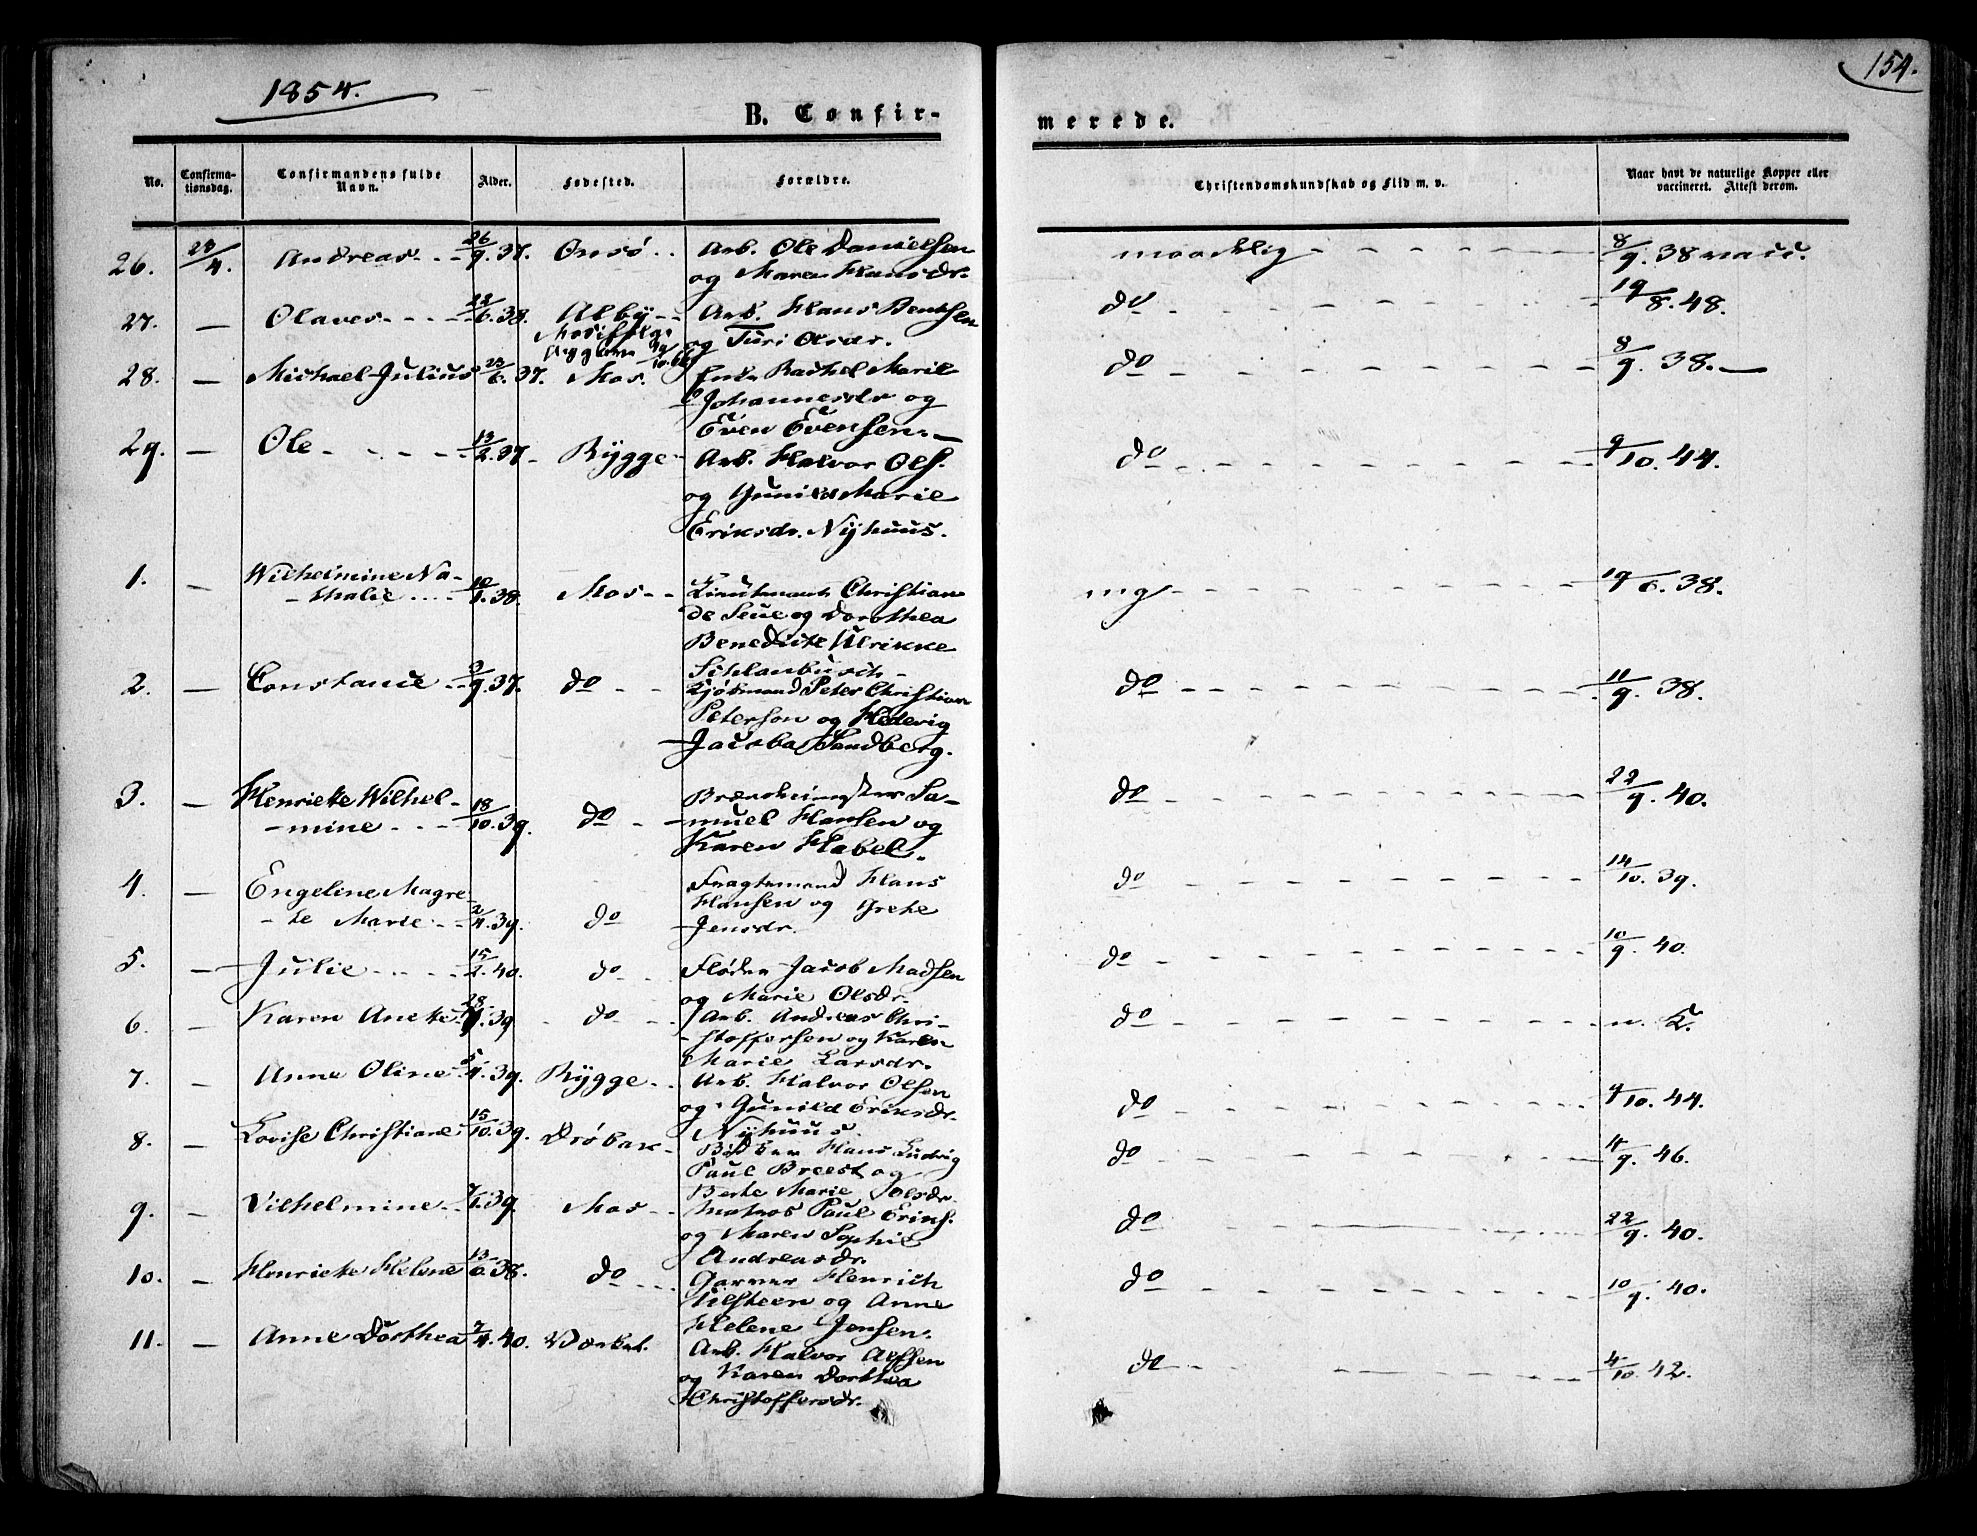 1854.
154.
B. Confir-
merede.
No.
Confirma-
tionsdag.
Confirmandens fulde
Navn.
Alder.
Fødested.
Forældre.
Christendomskundskab og Flid m. v.
Naar havt de naturlige Kopper eller
vaccineret. Attest derom.
26. 23/4. Andreas 26/9.37. Onsö Arb. Ole Danielsen maadelig 8/9. 38 vacc.
og Maren Hansdr.
27. — Olaves 22/6.38. Alby Arb. Hans Bentsen do 19/8. 48.
og Turi Olsdr.
28. — Michael Julius 23/6.37. Mos. Rachel Marie do 8/9. 38. —
Johannesdr og
Even Evensen. —
29. — Ole 13/2.37 Rÿgge Arb. Halvor Ols. do 9/10. 44.
og Gunild Marie
Eriksdr. Nyhuus.
1. — Wilhelmine Na-
-thalie 10/1.38. Mos Lieutenant Christian mg 19/6.38.
de Seue og Dorothea
Benedicte Ulrikke
2. — Constance 3/9.37. do Peter Christian do 11/9. 38.
Petersen og Hedevig
Jacoba Sandberg.
3. — Henriette Wilhel-
-mine 18/10.39. do Sa- do 22/9. 40.
-muel Hansen og
Karen Habel.
4. — Engeline Magre-
-te Marie 2/4.39. do Fragtemand Hans do 14/10. 39.
Hansen og Grethe
Jensdr.
5. — Julie 15/2.40. do Jacob Madsen do 10/9. 40.
og Marie Olsdr.
6. — Karen Anette .39 do Arb. Andreas Chri- do
-stoffersen og Karen
Marie Larsdr.
7. — Anne Oline 5/4.39. Rÿgge Arb. Halvor Olsen do 9/10. 44.
og Gunild Eriksdr.
Nyhuus.
8. — Lovise Christiane 15/10.39. Dröbak Bödker Hans Ludvig do 4/9. 46.
Paul Breest og
Berte Marie Olsdr.
9. — Vilhelmine 7/1.39. Mos Matros Paul Eriks. do 22/9. 40.
og Maren Sophie
Andreasdr.
10. — Henriette Helene 13/6.38. do Garver Henrich do 10/9. 40.
Tilsteen og Anne
Helene Jensen.
11. — Anne Dorthea 7/4.40. Værket. Arb. Halvor Alfsen do 4/10. 42.
og Karen Dorthea
Christoffersdr.